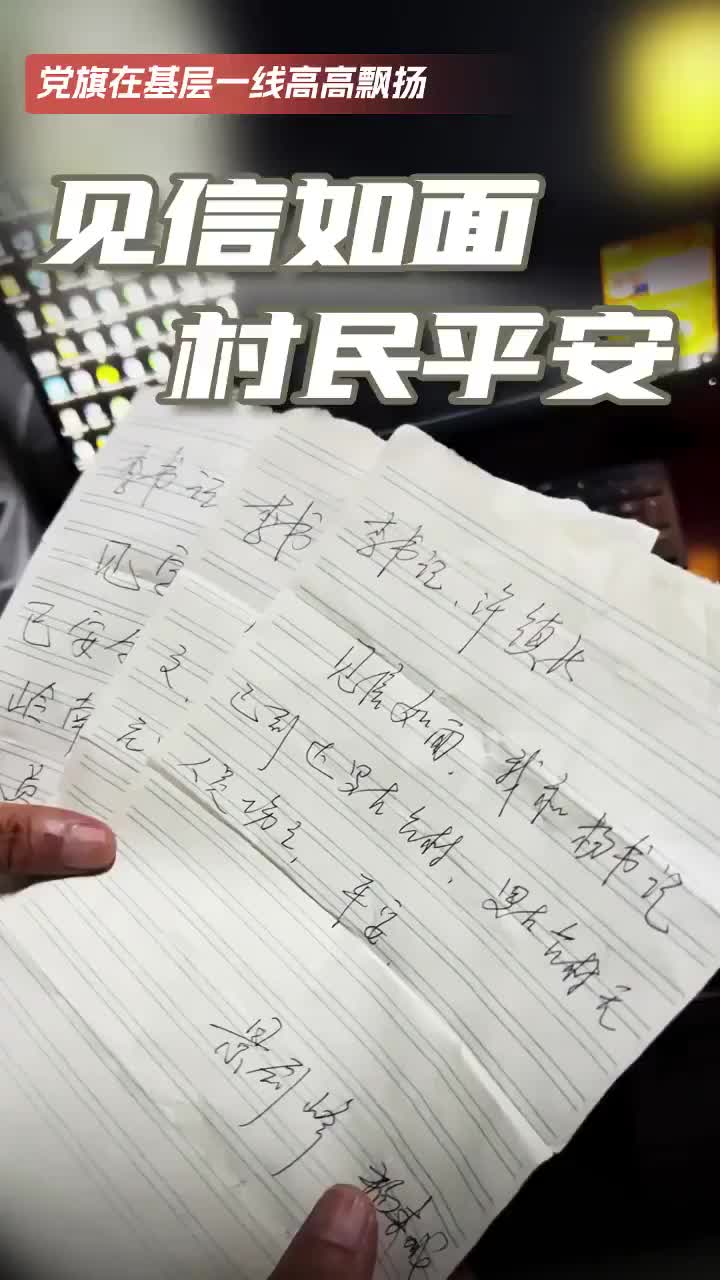 党旗在基层一线高高飘扬
见信如面
村民平安
李书记
见
已安全
岭南
员
李书
李书记、许镇长
见信如面,我和杨书记
已到达黑大台村,黑大台村无
人员伤亡,平安。
景剑峰